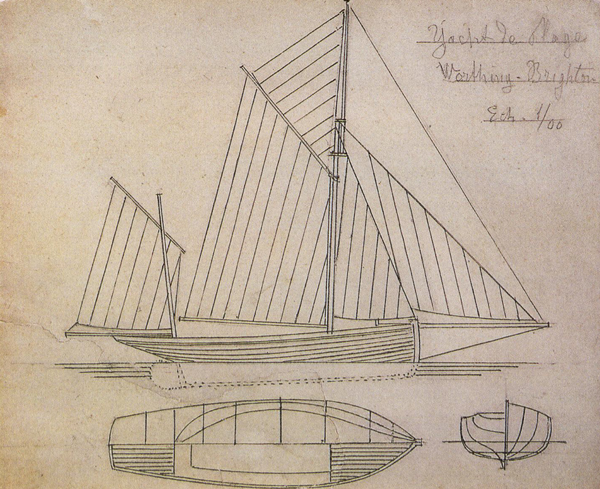 Yacht de Plage
Worthing - Brighton
Ech. 1/00